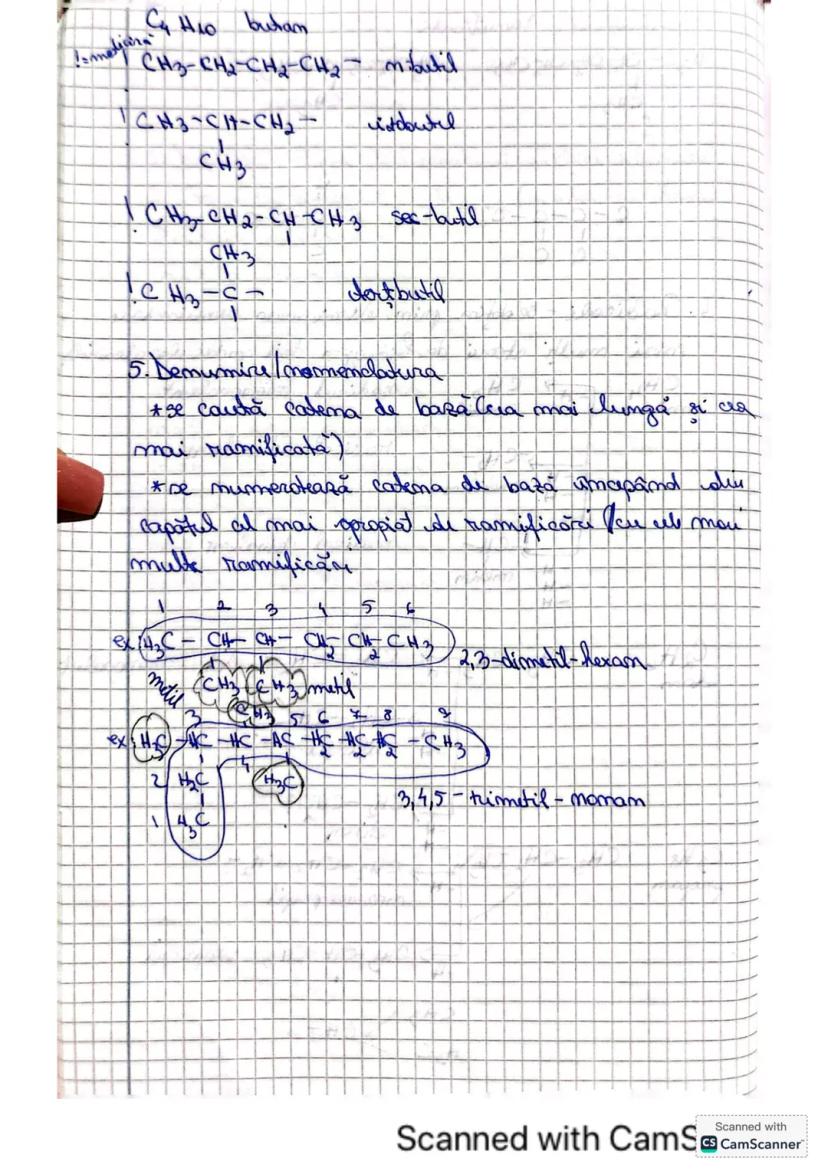 C4 H10 butan
CH3-CH2-CH2-CH2- n-butil
! CH3-CH-CH2- izobutil
CH3
! CH3-CH2-CH-CH3 sec-butil
CH3
! CH3-C- terțbutil
5. Denumire/nomenclatura
*se caută catena de bază (cea mai lungă și cea
mai ramificată)
*se numerotează catena de bază începând din
capătul cel mai apropiat de ramificări (cu cele mai
multe ramificări
1 2 3 4 5 6
ex H3C - CH - CH - CH2 - CH2 - CH3 2,3-dimetil-hexan
metil CH3 CH3 metil
3 CH3 5 6 7 8 9
ex H3C - HC - HC - HC - H2C - H2C - H2C - CH3
2 H2C 4 H3C
3,4,5-trimetil-nonan
1 H3C
Scanned with CamS
Scanned with
CS CamScanner